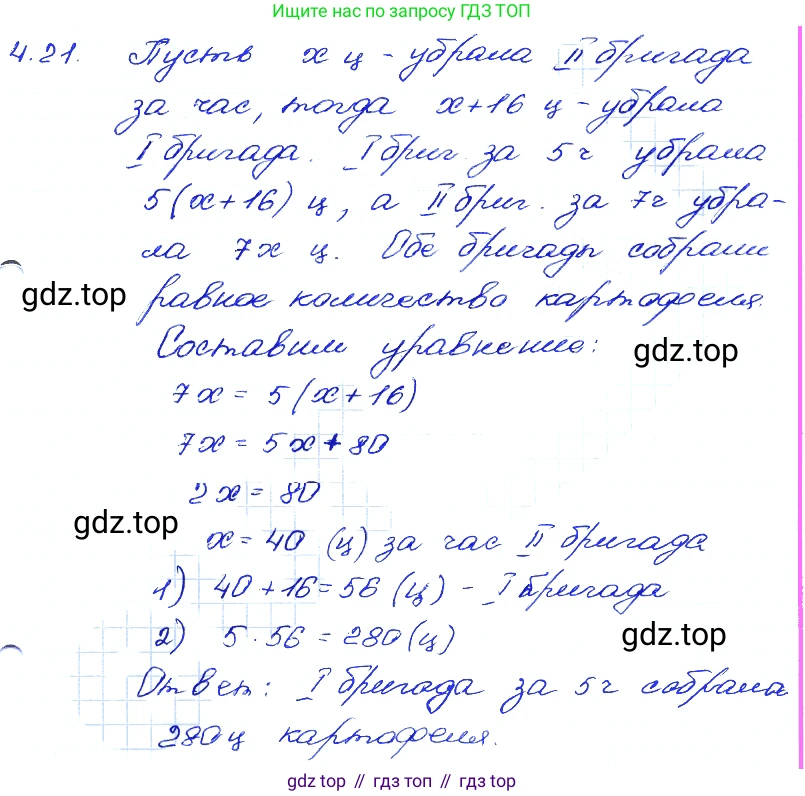 Ищите нас по запросу ГДЗ ТОП
4.21. Пусть x ц - убрала II бригада
за час, тогда x+16 ц - убрала
I бригада. I бриг. за 5 ч убрала
5(x+16) ц, а II бриг. за 7ч убра-
ла 7x ц. Обе бригады собрали
gdz.top равное количество картофеля.
Составим уравнение: gdz.top
7x = 5(x+16)
7x = 5x + 80
2x = 80
gdz.top x = 40 (ц) за час II бригада
1) 40 + 16 = 56 (ц) - I бригада
2) 5 · 56 = 280 (ц) gdz.top
Ответ: I бригада за 5ч собрала
280ц картофеля.
gdz топ // гдз топ // gdz top